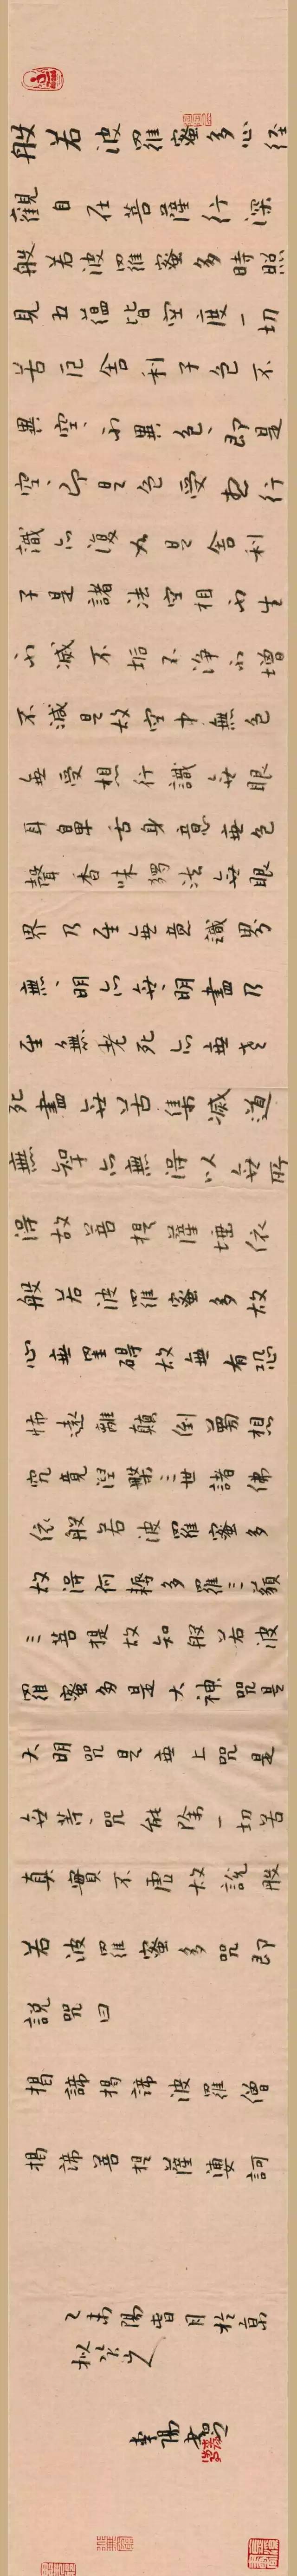 般若波羅蜜多心经
觀自在菩薩行深
般若波羅蜜多時照
見五蕴皆空度一切
苦厄舍利子色不
異空、不異色、即是
空、即是色受想行
識亦復如是舍利
子是諸法空相不生
不滅不垢不净不增
不減是故空中無色
無受想行識無眼
耳鼻舌身意無色
聲香味觸法無眼
界乃至無意識界
無、明亦無、明盡乃
至無老死亦無老
死盡無苦集滅道
無智亦無得以無所
得故菩提薩埵依
般若波羅蜜多故
心無罣碍故無有恐
怖遠離顛倒夢想
究竟涅槃三世諸佛
依般若波羅蜜多
故得阿耨多羅三藐
三菩提故知般若波
羅蜜多是大神咒是
大明咒是無上咒是
無等、咒能除一切苦
真實不虛故說般
若波羅蜜多咒即
說咒曰
揭諦揭諦波羅僧
揭諦菩提薩婆訶
乙未陽春月於京